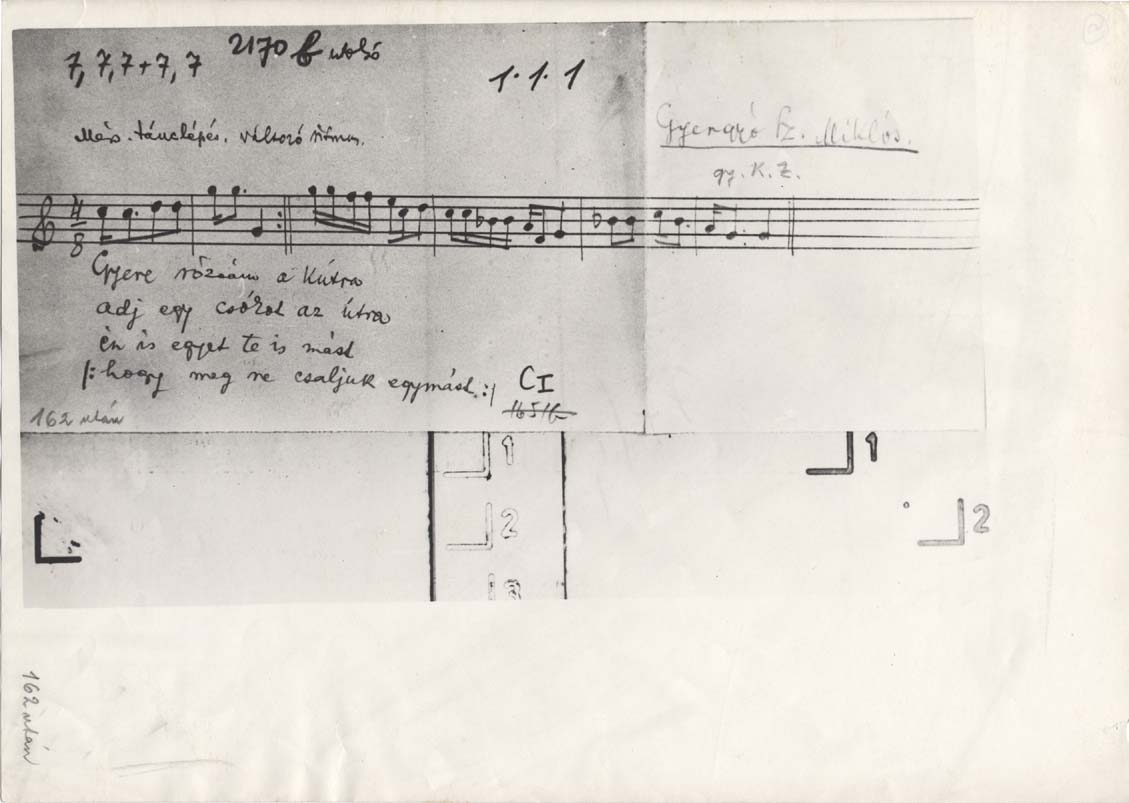 7, 7, 7+7, 7
2170 f utolsó
1. 1. 1
Més. tánclépés. változó ritmus.
Gyergyó Sz. Miklós.
gy. K. Z.
4/8
Gyere rózsám a kútra
adj egy csókot az útra
én is egyet te is mást
|: hogy meg ne csaljuk egymást. :|
CI
162 után
1
1
2
2
3
162 után